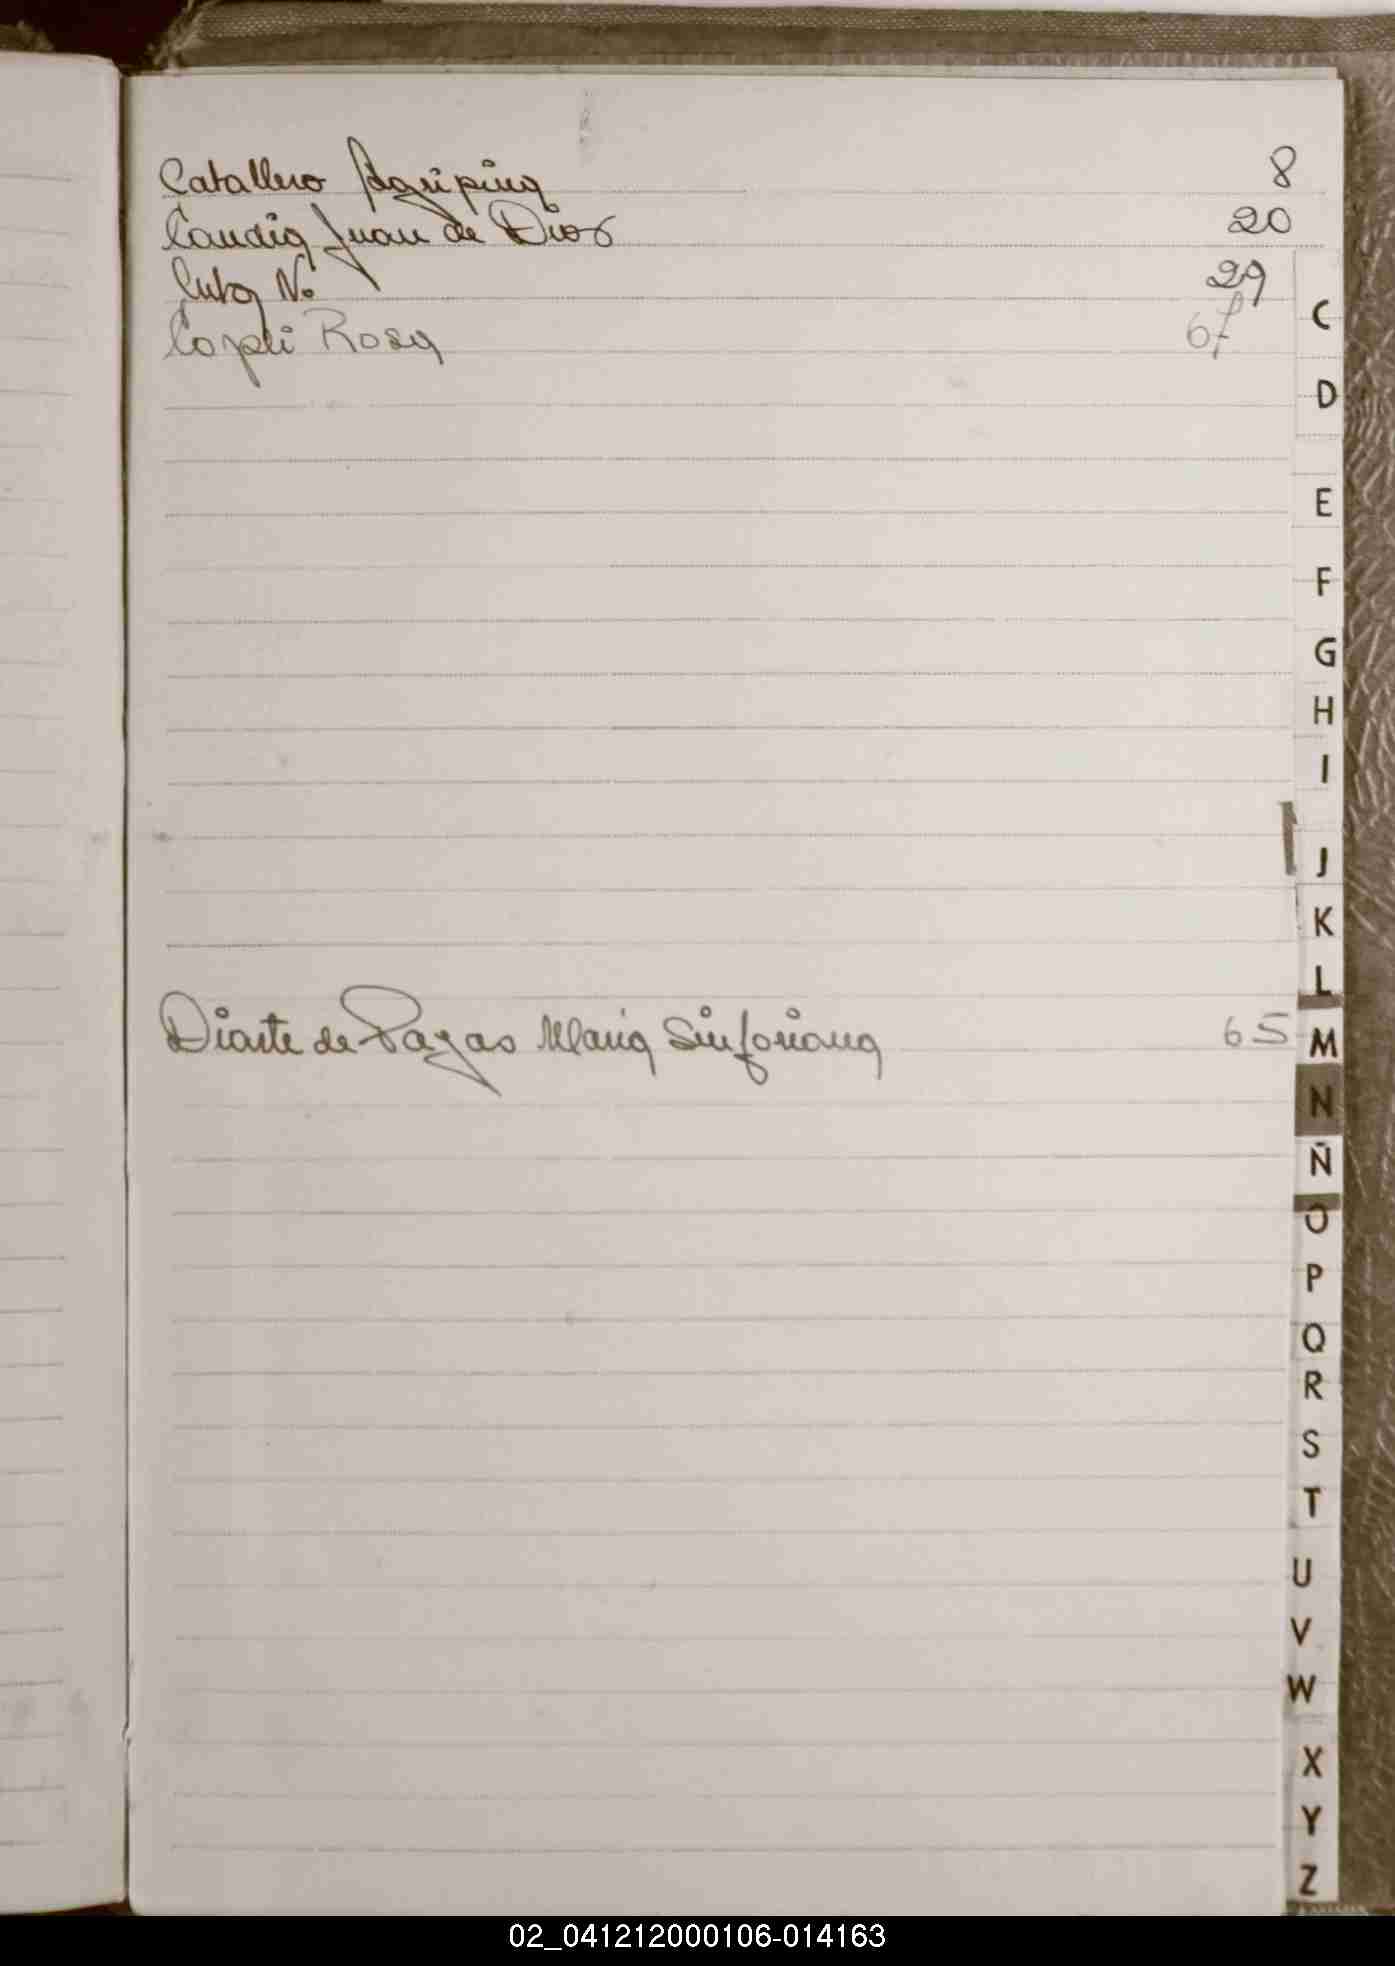 Caballero Agripina 8
Candia Juan de Dios 20
Cuba N. 29
Cozpli Rosa 67
C
D
E
F
G
H
I
J
K
L
Diarte de Pazas Maria Sinforiana 65
M
N
Ñ
O
P
Q
R
S
T
U
V
W
X
Y
Z
02_041212000106-014163